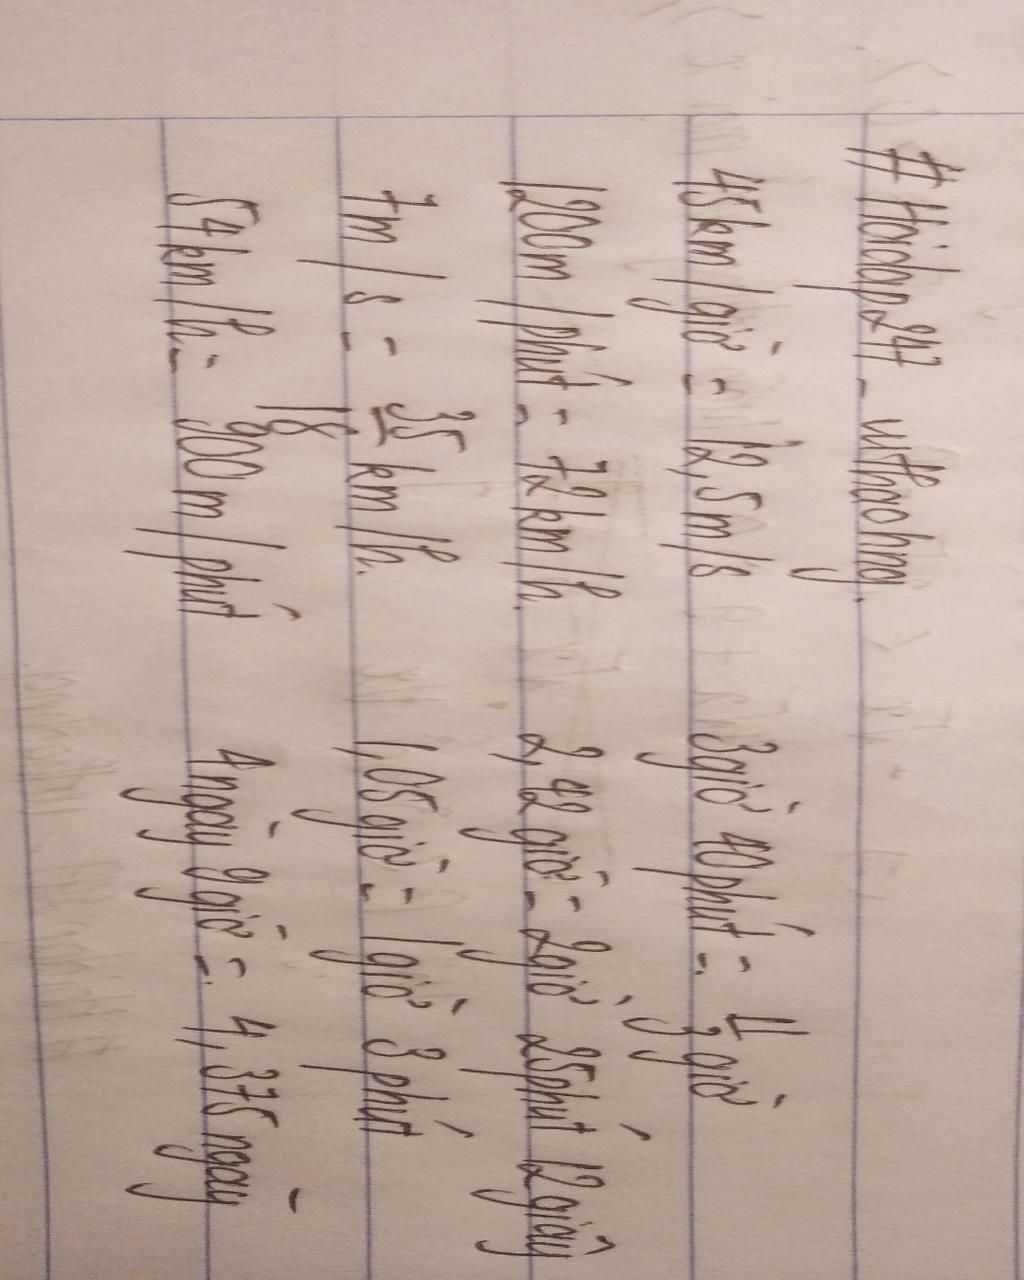 #Hoidap247 - uithaohng.
45km/giờ = 12,5m/s 3giờ 40 phút = 11/3 giờ
1200m/phút = 72km/h. 2,42 giờ = 2giờ 25phút 12giây
7m/s = 35/18 km/h. 1,05 giờ = 1giờ 3 phút
54km/h = 900m/phút 4ngày 9giờ = 4,375 ngày